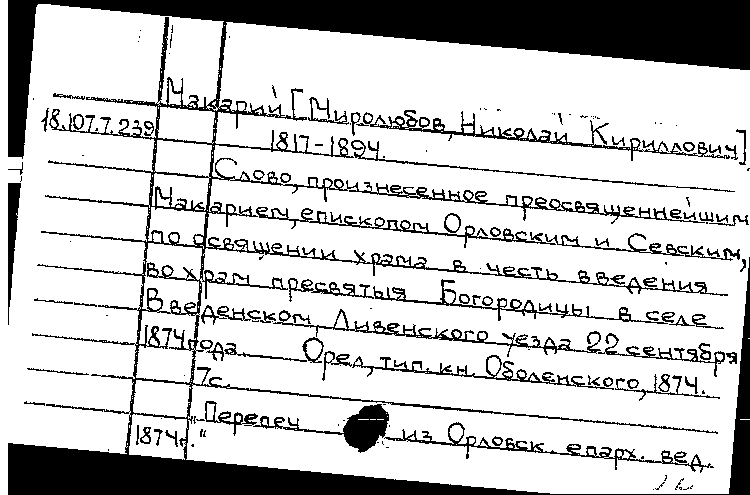 Макарий [Миролюбов, Николай Кириллович]
18.107.7.239
1817-1894.
Слово, произнесенное преосвященнейшим
Макарием, епископом Орловским и Севским,
по освящении храма в честь введения
во храм пресвятыя Богородицы в селе
Введенском, Ливенского уезда 22 сентября
1874 года. Орел, тип. кн. Оболенского, 1874.
7с.
"Перепеч из Орловск. епарх. вед.
1874г."